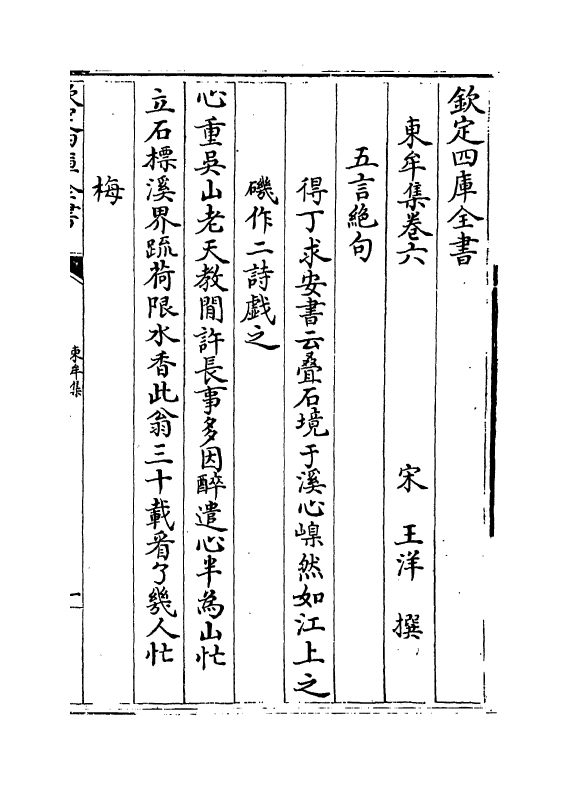 欽定四庫全書
東牟集卷六
宋 王洋 撰
五言絶句
得丁求安書云叠石境于溪心㠝然如江上之
磯作二詩戯之
心重吳山老天教閒許長事多因醉遣心半為山忙
立石標溪界疏荷限水香此翁三十載看了幾人忙
梅
欽定四庫全書
東牟集
一